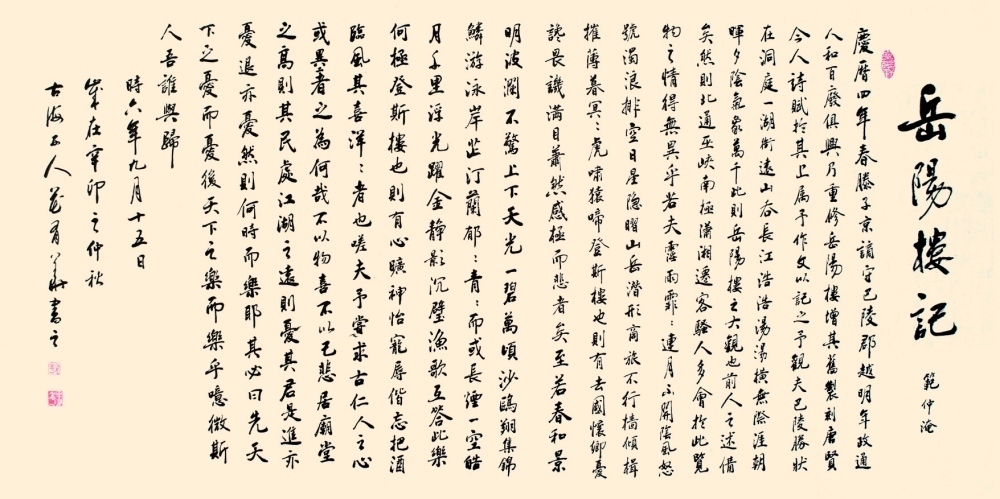 岳陽樓記
範仲淹
慶曆四年春滕子京謫守巴陵郡越明年政通
人和百廢俱興乃重修岳陽樓增其舊製刻唐賢
今人詩賦於其上属予作文以記之予觀夫巴陵勝狀
在洞庭一湖銜遠山吞長江浩浩湯湯橫無際涯朝
暉夕陰氣象萬千此則岳陽樓之大觀也前人之述備
矣然則北通巫峽南極瀟湘遷客騷人多會於此覽
物之情得無異乎若夫霪雨霏々連月不開陰風怒
號濁浪排空日星隐曜山岳潛形商旅不行檣傾楫
摧薄暮冥々虎嘯猿啼登斯樓也則有去國懷鄉憂
讒畏譏滿目蕭然感極而悲者矣至若春和景
明波瀾不驚上下天光一碧萬頃沙鷗翔集錦
鱗游泳岸芷汀蘭郁々青々而或長煙一空皓
月千里浮光躍金靜影沉璧漁歌互答此樂
何極登斯樓也則有心曠神怡寵辱偕忘把酒
臨風其喜洋々者也嗟夫予嘗求古仁人之心
或異者之為何哉不以物喜不以己悲居廟堂
之高則其民處江湖之遠則憂其君是進亦
憂退亦憂然則何時而樂耶其必曰先天
下之憂而憂後天下之樂而樂乎噫微斯
人吾誰與歸
時六年九月十五日
歲在辛卯之仲秋
古海工人書之